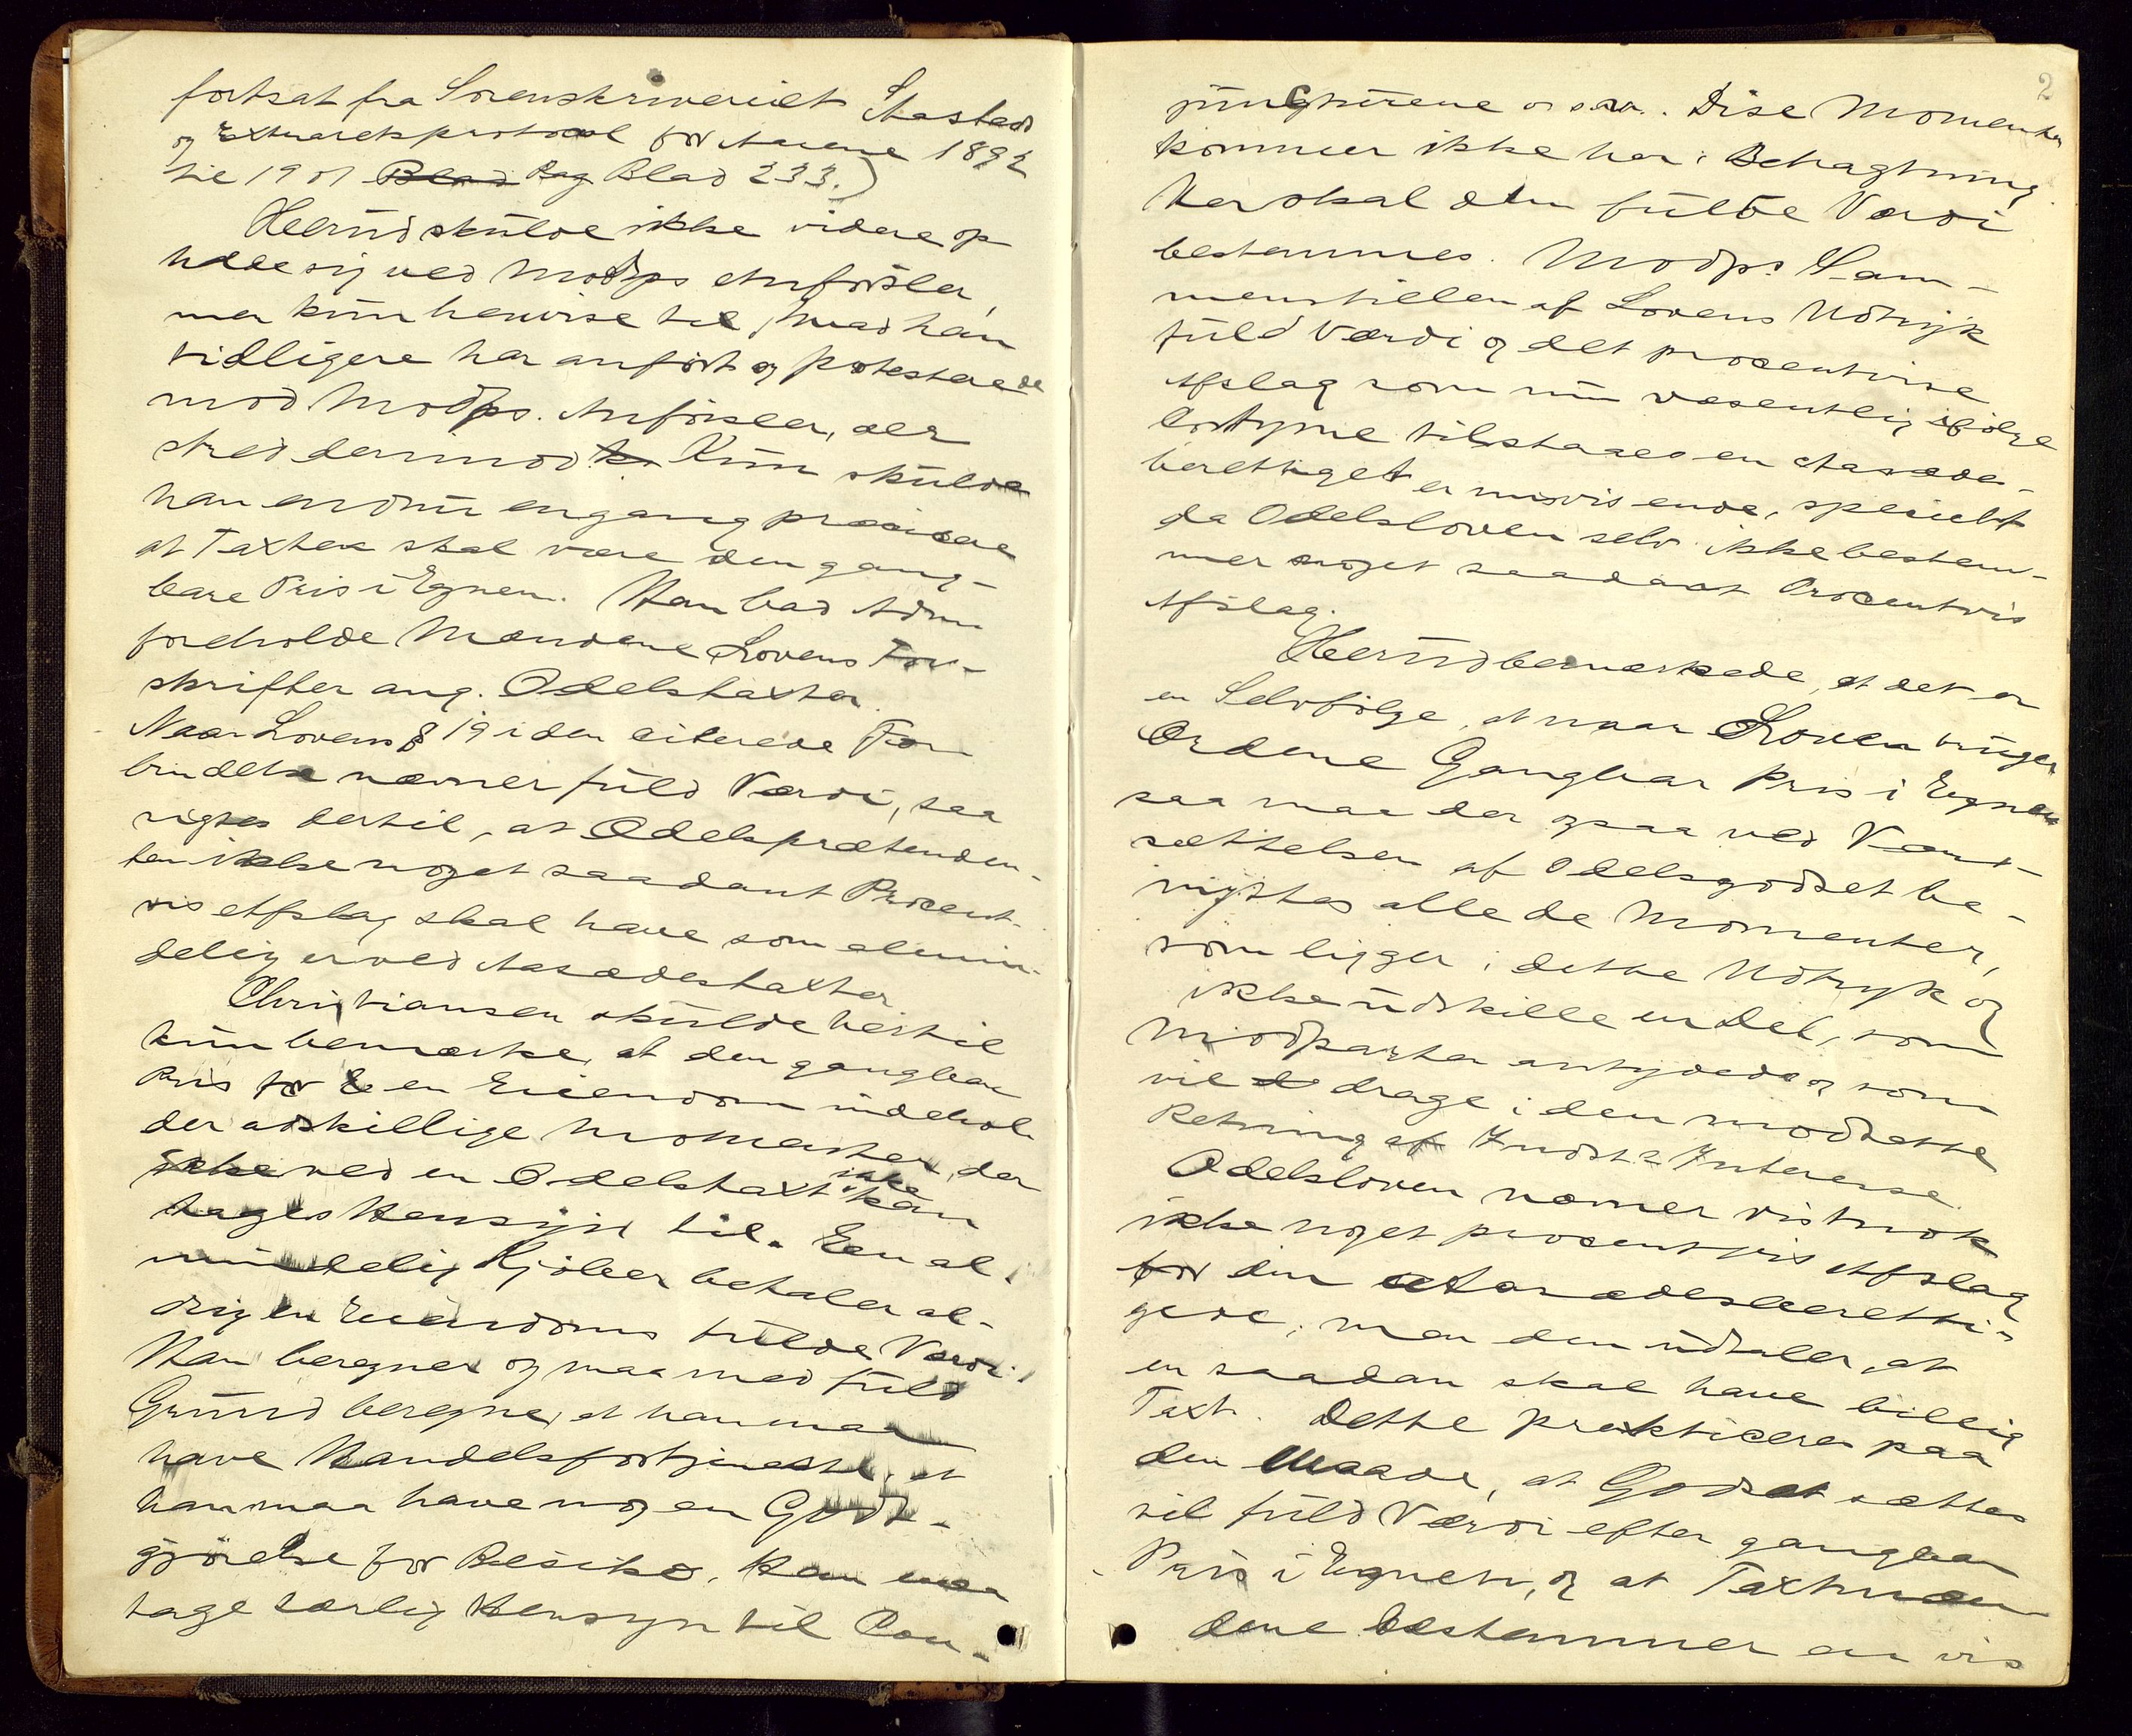 fortsat fra Sorenskriveriets Aastads
og Extraretsprotocol for Aarene 1892
til 1901 Blad Pag Blad 233.)
Heerud skulde ikke videre op
holde sig ved Modps Anførsler,
men kun henvise til, hvad han
tidligere har anført og protesterede
mod Modps. Anførsler, der
stred derimod. Kun skulde
han endnu engang præcisere
at Taxten skal være den gang-
bare Pris i Egnen. Han bad Adm
foreholde Mændene Lovens For-
skrifter ang. Odelstaxter.
Naar Lovens § 19 i den citerede For
bindelse nævner fuld Værdi, saa
sigtes dertil, at Odelsprætenden-
ten ikke noget saadant Procent-
vis Afslag skal have som almin-
delig er ved Aasædestaxter
Christiansen skulde hertil
kun bemærke, at den gangbare
Pris for en Eiendom indehol-
der adskillige Momenter, der
ikke ved en Odelstaxt ikke kan
tages Hensyn til. En al-
mindelig Kjøber betaler al-
drig en Eiendoms fulde Værdi.
Han beregner og maa med fuld
Grund beregne, at han maa
have Handelsfortjeneste, at
han maa have nogen Godt-
gjørelse for Risiko. Han maa
tage særlig Hensyn til Con-
2
juncturene o s. v.. Disse Momenter
kommer ikke her i Betragtning
Her skal den fulde Værdi
bestemmes. Modps. Sam-
menstillen af Lovens Udtryk
fuld Værdi og det procentvise
Afslag som nu væsentlig ifølge
tilstaaes en Aasædes-
berettiget er misvisende, specielt
da Odelsloven selv ikke bestem-
mer noget saadant Procentvis
Afslag.
Heerud bemærkede, at det er
en Selvfølge, at naar Loven bruger
Ordene Gangbar Pris i Egnen
saa maa der ogsaa ved Værd-
sættelsen af Odelsgodset be-
nyttes alle de Momenter,
som ligger i dette Udtryk og
ikke udskille en Del, som
Modparten antydede og som
vil de drage i den modsatte
Retning af Indst.s Interesse
Odelsloven nævner vistnok
ikke noget procentvis Afslag
for den Aasædesberetti-
gede, men den udtaler, at
en saadan skal have billig
Taxt. Dette prakticeres paa
den Maade, at Godset sættes
til fuld Værdi efter gangbar
Pris i Egnen, og at Taxtmæn
dene bestemmer en vis